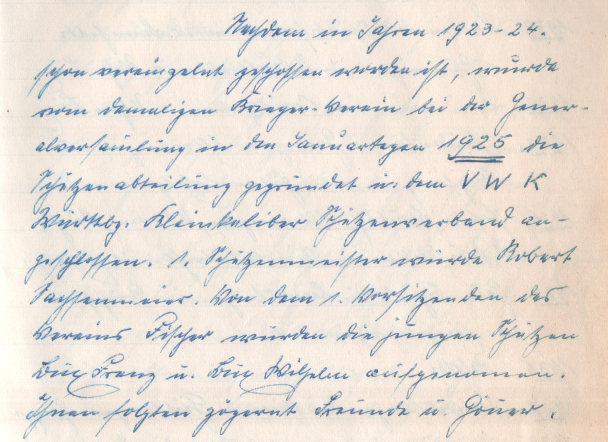 Nachdem in Jahren 1923-24.
schon vereinzelnt geschossen worden ist, wurde
vom damaligen Krieger-Verein bei der Gener-
alversamlung in den Januartagen 1925 die
Schützenabteilung gegründet u. dem V W K
Württbg. Kleinkaliber Schützenverband an-
geschlossen. 1. Schützenmeister wurde Robert
Sachsenmeier. Von dem 1. Vorsitzenden des
Vereins Fischer wurden die jungen Schützen
Franz u. Wilhelm aufgenomen.
Ihnen folgten zögernt Freunde u. Göner.